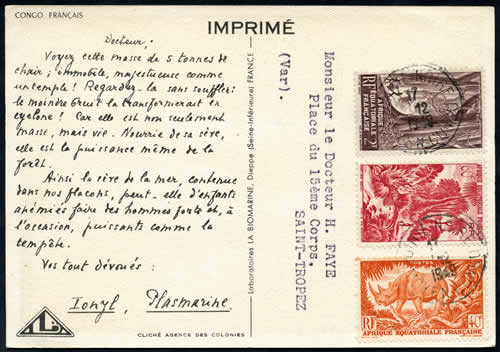 CONGO FRANÇAIS
IMPRIMÉ
Docteur,
Voyez cette masse de 5 tonnes de
chair ; immobile, majestueuse comme
un temple ! Regardez-la sans souffler :
le moindre bruit la transformerait en
cyclone ! Car elle est non seulement
masse, mais vie. Nourrie de sa sève,
elle est la puissance même de la
forêt.
Ainsi la sève de la mer, contenue
dans nos flacons, peut-elle d'enfants
anémiés faire des hommes forts et, à
l'occasion, puissants comme la
tempête.
Vos tout dévoués :
Ionyl, Plasmarine
LB
CLICHÉ AGENCE DES COLONIES
Laboratoires LA BIOMARINE, Dieppe (Seine-Inférieure) FRANCE
Monsieur le Docteur H. FAYE
Place du 15ème Corps.
SAINT-TROPEZ
(Var).
RF
AFRIQUE
EQUATORIALE
FRANÇAISE
2F
17
12
POSTES
RF
40c
AFRIQUE EQUATORIALE FRANÇAISE